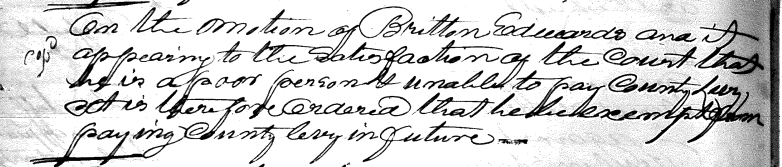 On the motion of Britton Edwards and it
copd
appearing to the satisfaction of the Court that
he is a poor person & unable to pay County Levy
It is therefore Ordered that he be exempt from
paying County levy in future